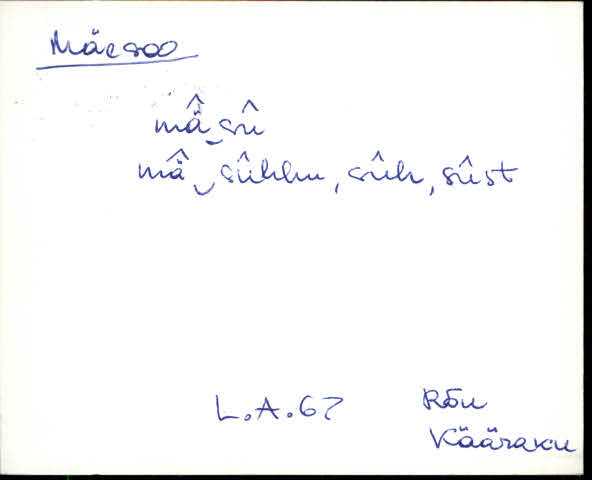 Mäesoo
mä̂‿sû
mä̂‿sûhhu, sûh, sûst
L.A.67 Rõu
Kääraku